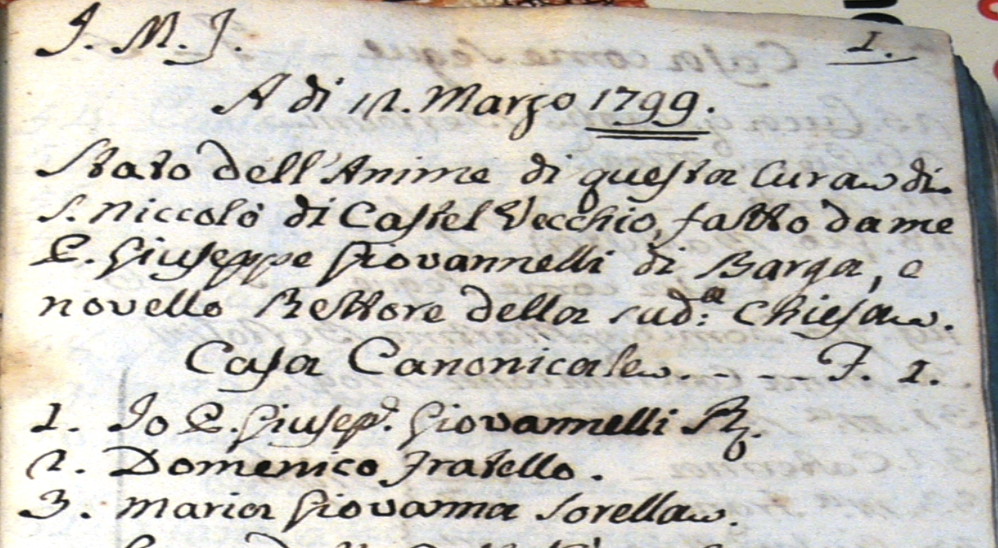 J. M. J. 1.
A di 12. Marzo 1799.
Stato dell'Anime di questa Cura di
S. Niccolò di Castel Vecchio, fatto da me
P. Giuseppe Giovannelli di Barga, e
novello Rettore della sud:a Chiesa.
Casa Canonicale. - - - F. 1.
1. Io P. Giusep.e Giovannelli R.
2. Domenico Fratello.
3. Maria Giovanna Sorella.